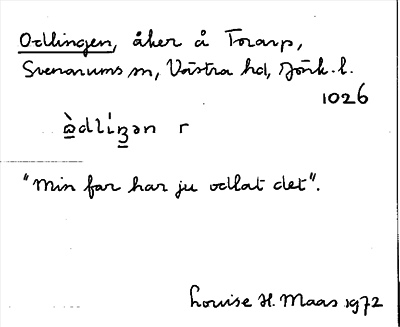 Odlingen, åker å Torarp,
Svenarums sn, Västra hd, Jönk. l.
1026
ɷ̀dlíŋən r
"Min far har ju odlat det".
Louise H. Maas 1972